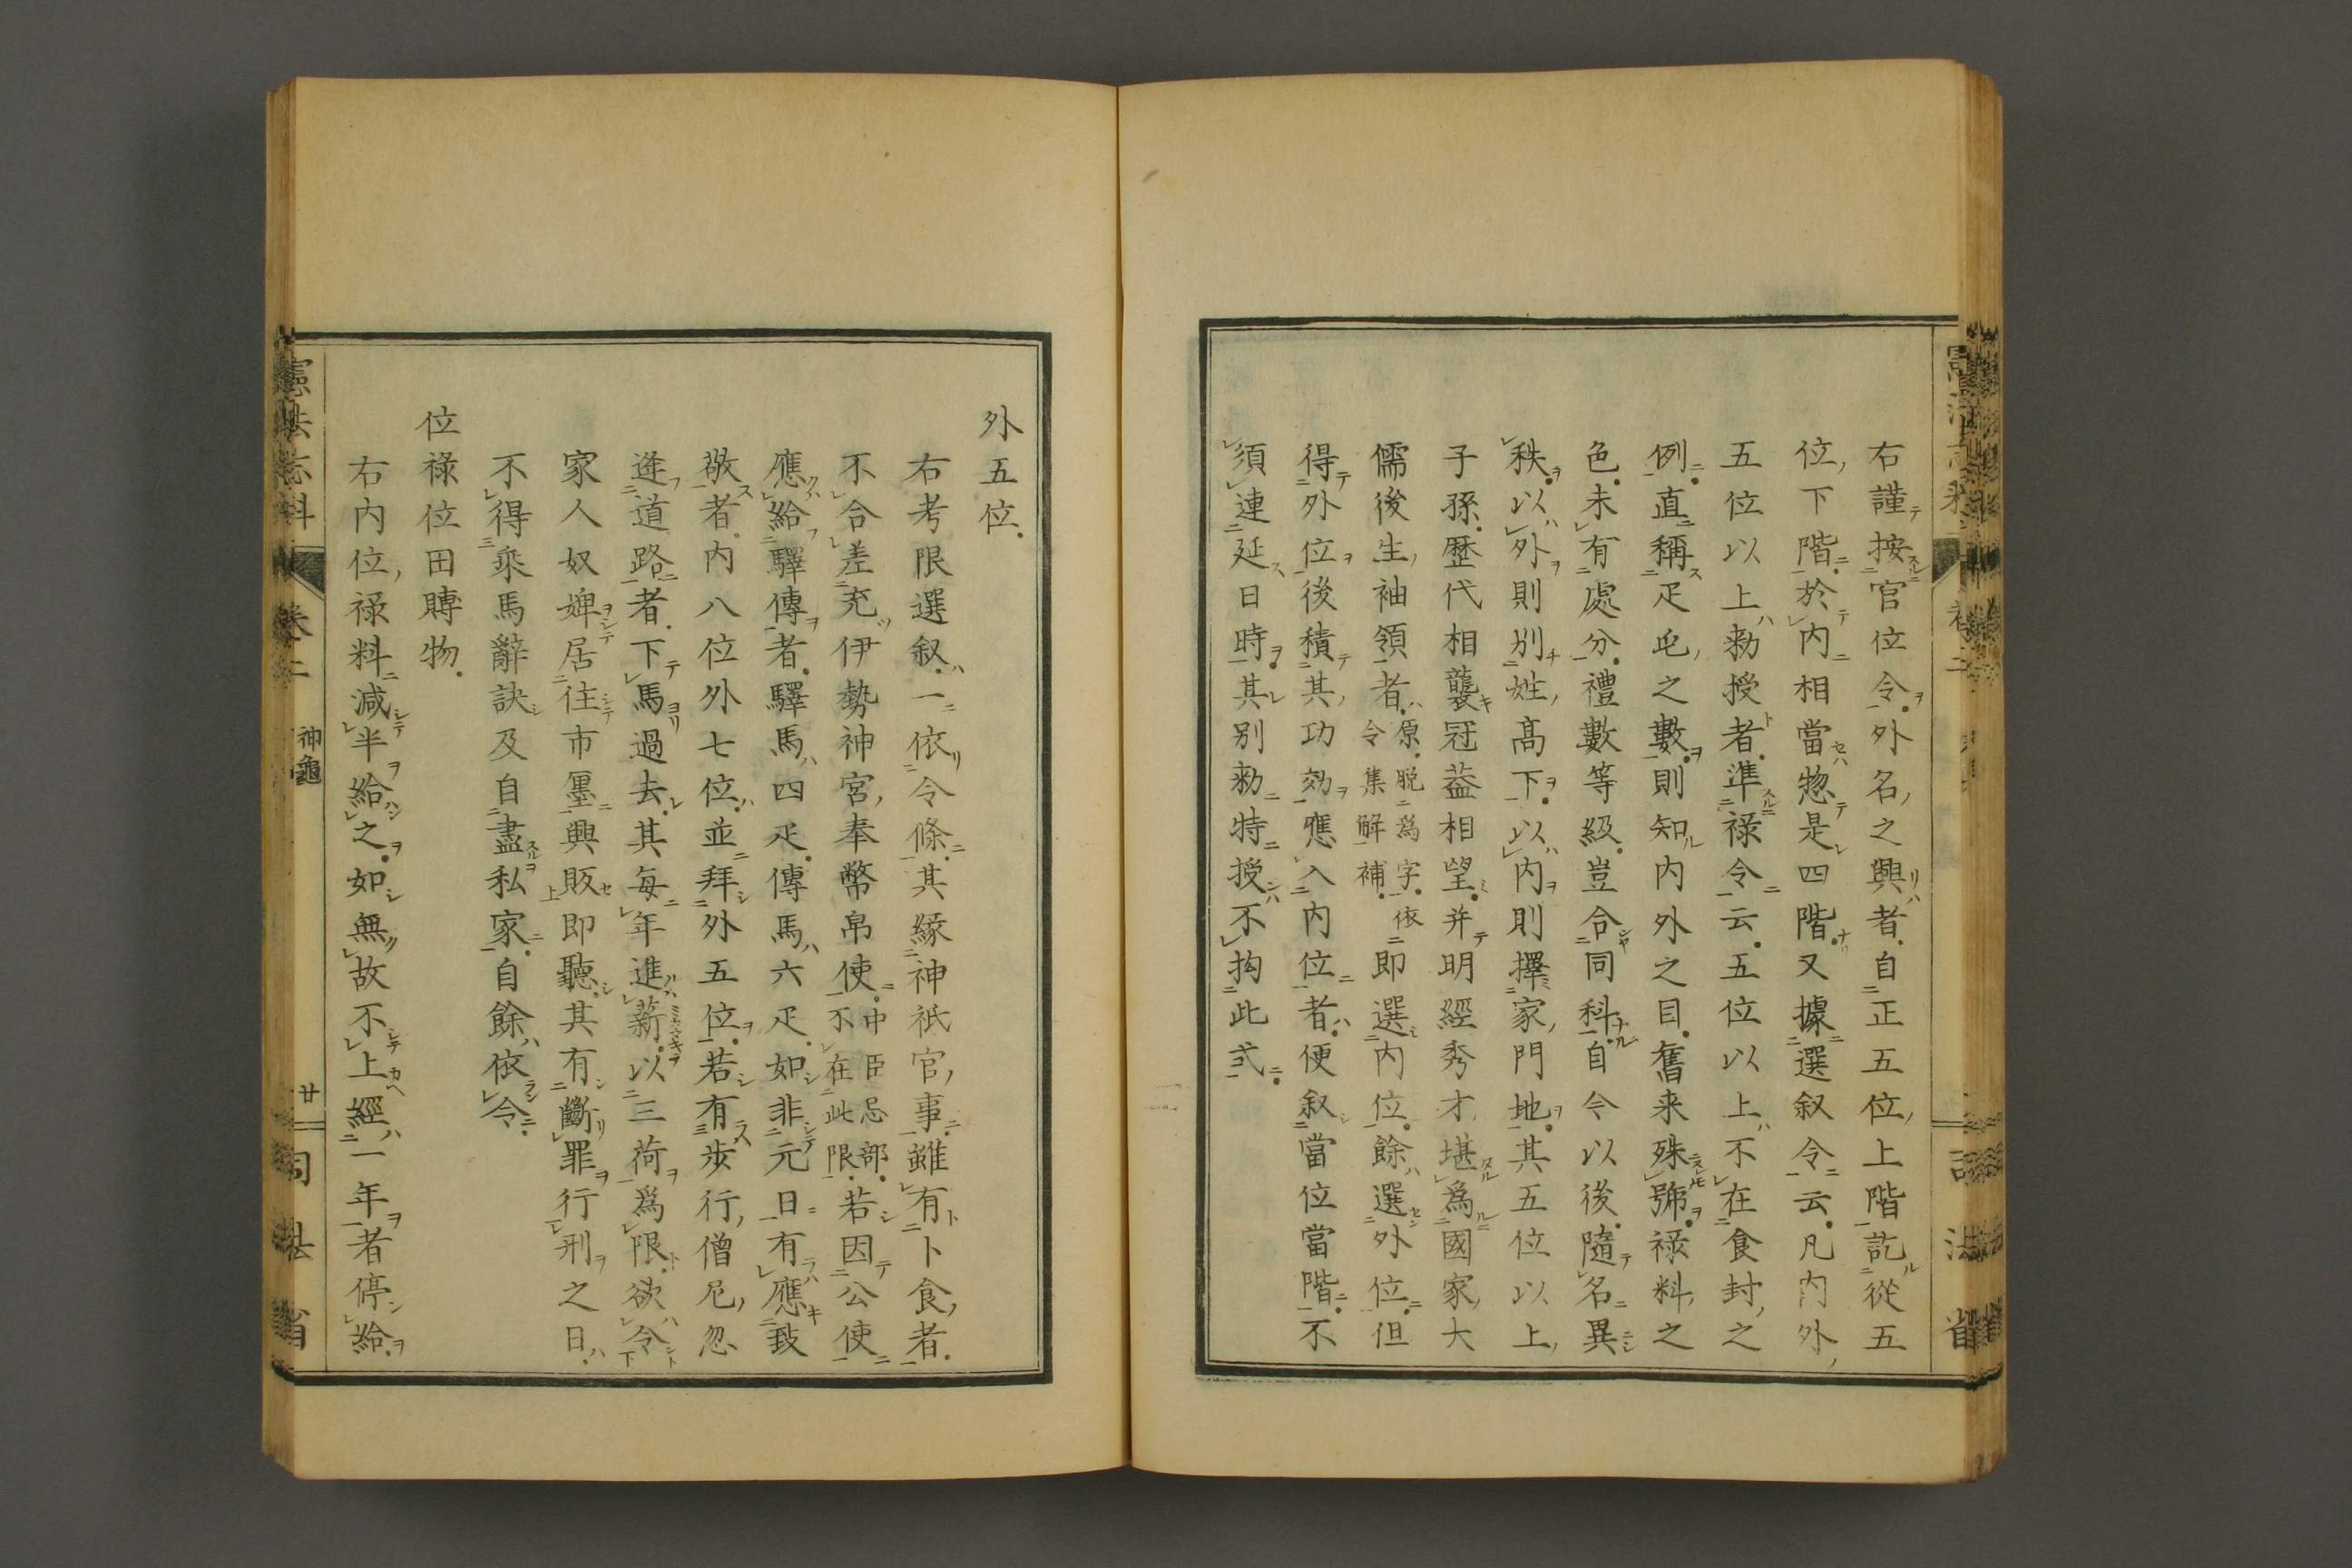 右謹按官位令外名之興者自正五位上階訖從五
位下階於内相當惣是四階又據選叙令云凡内外
五位以上勅授者準禄令云五位以上不在食封之
例直稱疋屯之數則知内外之目奮来殊號禄料之
色未有處分禮數等級豈合同科自今以後隨名異
秩以外則別姓高下以内則擇家門地其五位以上
子孫歴代相襲冠葢相望并明經秀才堪為國家大
儒後生袖領者原脱為字依令集解補即選内位餘選外位但
得外位後積其功効應入内位者便叙當位當階不
須連延日時其別勅特授不拘此弍
外五位
右考限選叙一依令條其縁神祇官事雖有卜食者
不合差充伊勢神宮奉幣帛使中臣忌部不在此限若因公使
應給驛傳者驛馬四疋傳馬六疋如非元日有應致
敬者内八位外七位並拜外五位若有歩行僧尼忽
逢道路者下馬過去其每年進薪以三荷為限欲令
家人奴婢居住市㕓興販即聽其有斷罪行刑之日
不得乘馬辭訣及自盡私家自餘依令
位祿位田賻物
右内位禄料減半給之如無故不上經一年者停給
憲法志料 卷二 神龜 廿 司法省